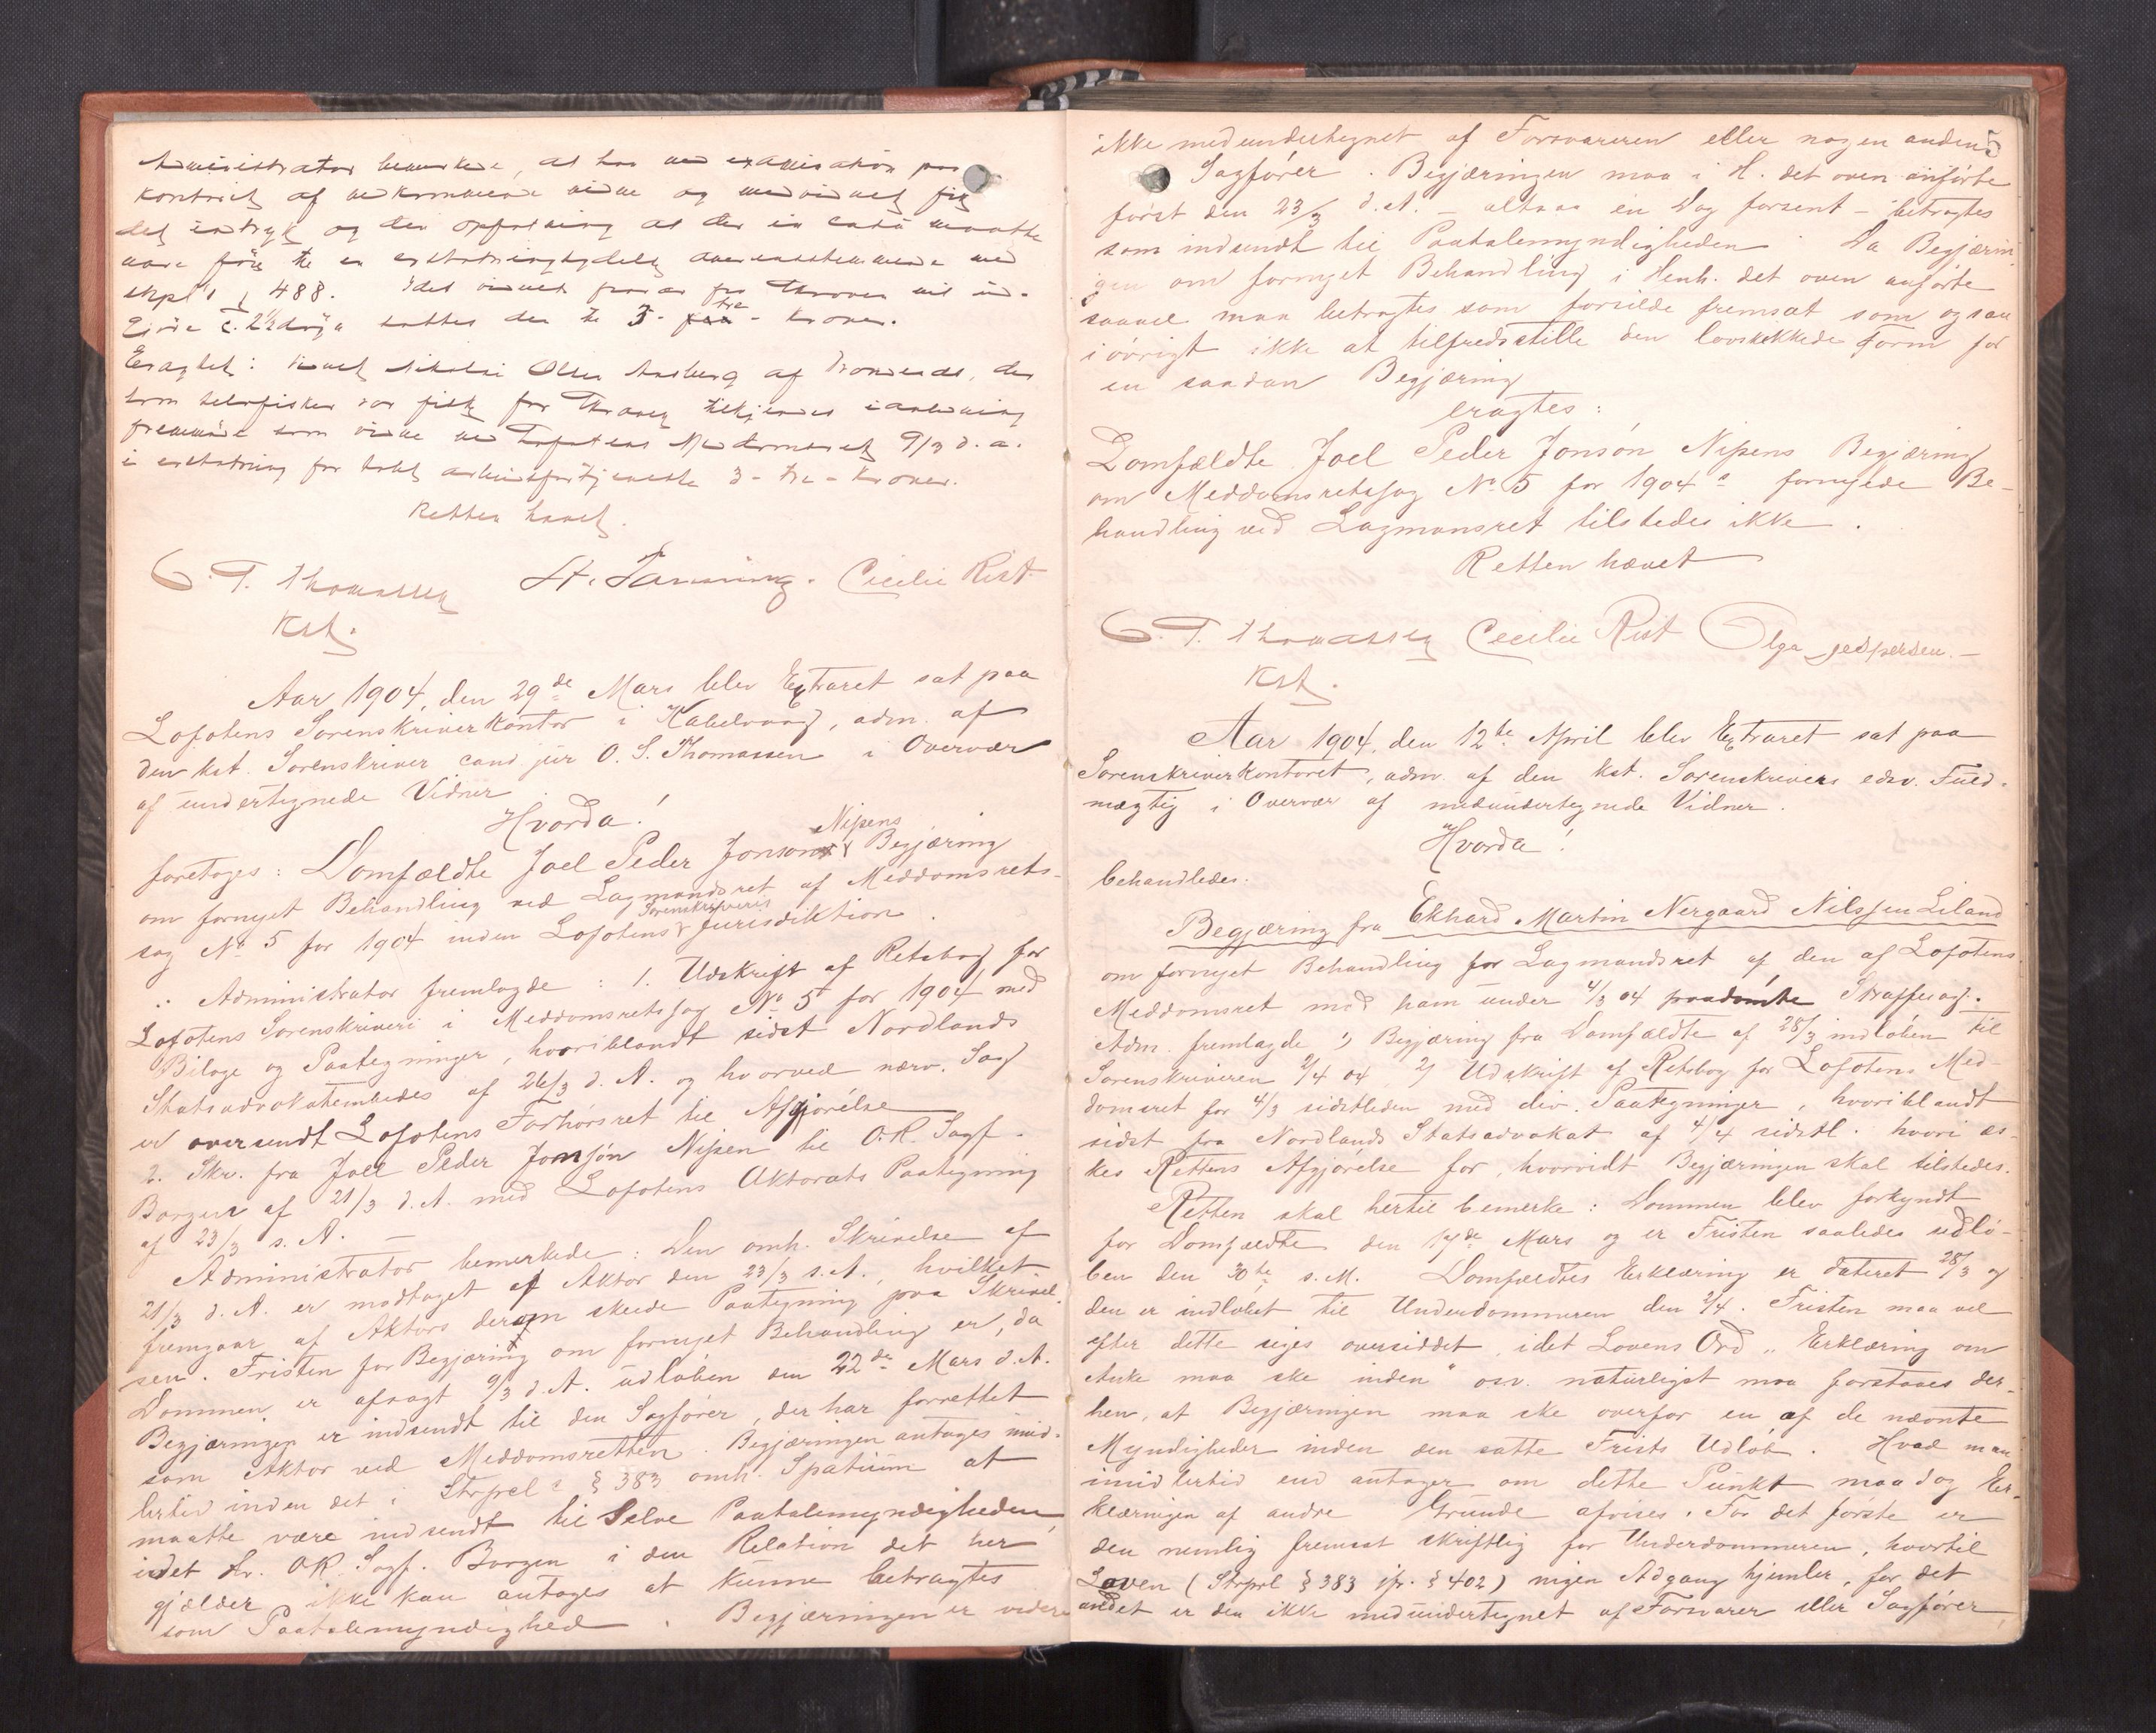 Administrator bemerkede, at han ved examination paa
kontoret af vedkommende vidne og medvidnet fik
det indtryk og den opfatning at der in casu maatte
være föie til en erstatningsydelse overensstemmende med
strpl's § 488. Idet vidnets fravær fra Thranen vil ud-
gjöre c. 2½ dögn sattes den til 3 - tre - kroner.
Eragtet: Vidnet Nikolai Olsen Aasberg af , der
som lotfisker ror fisk fra Thranen tilkjendes i anledning
fremmöde som vidne ved Lofotens Meddomsret 9/3 d.a.
i erstatning for tabt arbeidsfortjeneste 3 - tre - kroner.
Retten hævet.
O. T. Thomassen St. Tanning. Cecilie Rist
Kst.
Aar 1904, den 29de Mars blev Extraret sat paa
Lofotens Sorenskriverkontor i Kabelvaag, adm. af
den kst. Sorenskriver cand. jur O. S. Thomassen i Overvær
af undertegnede Vidner
Hvorda!
foretoges: Domfældte Joel Peder Jonson Nipens Begjæring
om fornyet Behandling ved Lagmandsret af Meddomsrets-
sag No 5 for 1904 inden Lofotens Sorenskriveris Jurisdiktion.
Administrator fremlagde: 1. Udskrift af Retsbog for
Lofotens Sorenskriveri i Meddomsretssag No 5 for 1904 med
Bilage og Paategninger, hvoriblandt sidst Nordlands
Statsadvokatembedes af 26/3 d. A. og hvorved nærv. Sag
er oversendt Lofotens Forhørsret til Afgjörelse
2. Skr. fra Joel Peder Jonsón Nipen til O.R. Sagf.
Borgen af 21/3 d.A. med Lofotens Aktorats Paategning
af 23/3 s. A. —
Administrator bemerkede: Den omh. Skrivelse af
21/3 d. A. er modtaget af Aktor den 23/3 s.A., hvilket
fremgaar af Aktors derom skede Paategning paa Skrivel-
sen. Fristen for Begjæring om fornyet Behandling er, da
Dommen er afsagt 9/3 d.A. udløben den 22de Mars d.A.
Begjæringen er indsendt til den Sagfører, der har forrettet
som Aktor ved Meddomsretten. Begjæringen antages imid-
lertid inden det i Strprl's § 383 omh. Spatium at
maatte være indsendt til Selve Paatalemyndigheden,
idet Hr. OR. Sagf. Borgen i den Relation det her
gjælder ikke kan antages at kunne betragtes
som Paatalemyndighed. Begjæringen er videre
5
ikke medundertegnet af Forsvareren eller nogen anden
Sagfører. Begjæringen maa i H. det oven anførte
først den 23/3 d.A. - altsaa én Dag forsent - betragtes
som indsendt til Paatalemyndigheden. Da Begjærin-
gen om fornyet Behandling i Henh. det oven anførte
saavel maa betragtes som forsilde fremsat som ogsaa
i øvrigt ikke at tilfredsstille den lovskikkede Form for
en saadan Begjæring
eragtes:
Domfældte Joel Peder Jonsón Nipens Begjæring
om Meddomsretssag No 5 for 1904's fornyede Be-
handling ved Lagmansret tilstedes ikke.
Retten hævet
O. T. Thomassen Cecilie Rist Olga Jespersen.
Kst.
Aar 1904, den 12te April blev Extraret sat paa
Sorenskriverkontoret, adm. af den kst. Sorenskrivers edsv. Fuld-
mægtig i Overvær af medundertegnede Vidner.
Hvorda!
behandledes.
Begjæring fra Ekhard Martin Nergaard Nilssen Liland
om fornyet Behandling for Lagmandsret af den af Lofotens
Meddomsret mod ham under 4/3 04 paadömte Straffesag.
Adm. fremlagde 1) Begjæring fra Domfældte af 28/3 indløben til
Sorenskriveren 2/4 04 2) Udskrift af Retsbog for Lofotens Med-
domsret for 4/3 sidstleden med div. Paategninger, hvoriblandt
sidst fra Nordlands Statsadvokat af 4/4 sidstl. hvori æs-
kes Rettens Afgjørelse for, hvorvidt Begjæringen skal tilstedes.
Retten skal hertil bemerke: Dommen blev forkyndt
for Domfældte den 17de Mars og er Fristen saaledes udlø-
ben den 30te s.M. Domfældtes Erklæring er dateret 28/3 og
den er indløbet til Underdommeren den 2/4. Fristen maa vel
efter dette siges oversiddet, idet Lovens Ord „Erklæring om
Anke maa ske inden“ osv. naturligst maa forstaaes der-
hen, at Begjæringen maa ske overfor en af de nævnte
Myndigheder inden den satte Frists Udløb. Hvad man
imidlertid end antager om dette Punkt maa dog Er-
klæringen af andre Grunde afvises. For det første er
den nemlig fremsat skriftlig for Underdommeren, hvortil
Loven (Strprl § 383 jfr. § 402) ingen Adgang hjemler, for det
andet er den ikke medundertegnet af Forsvarer eller Sagfører,